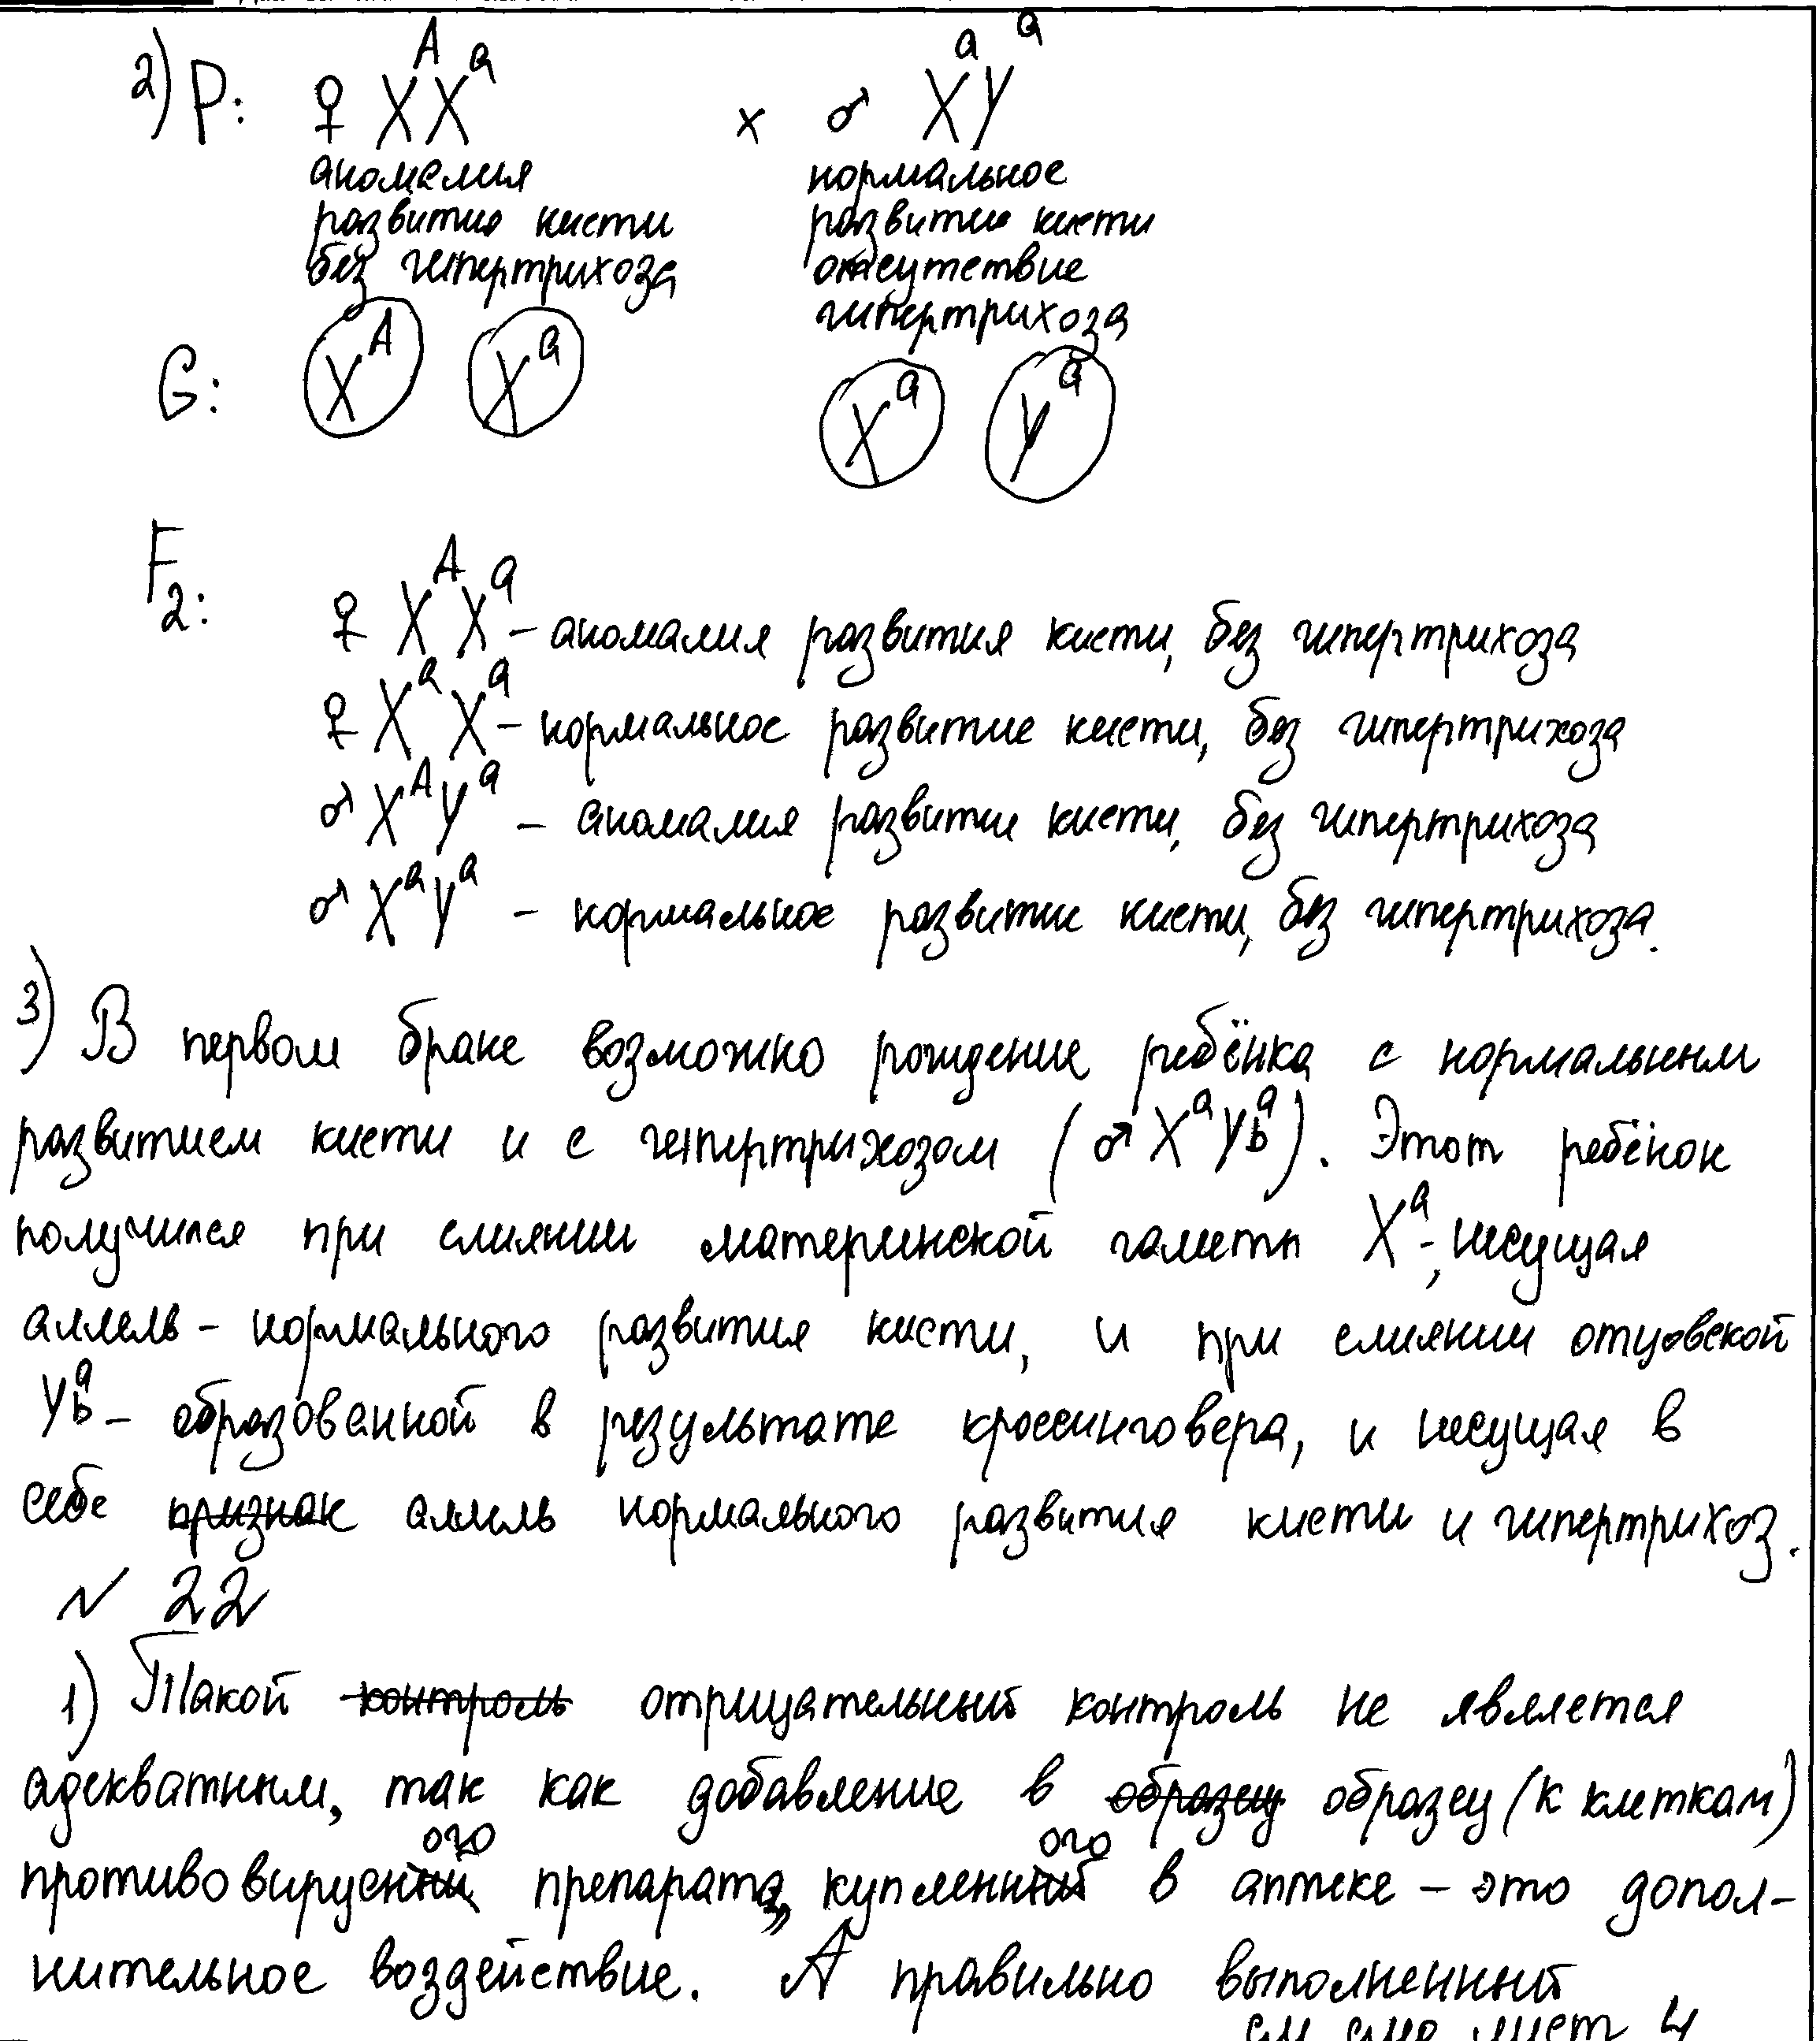 2) P: ♀ X^A X^a x ♂ X^a Y^a
аномалия нормальное
развития кисти развитие кисти
без гипертрихоза отсутствие
гипертрихоза
G: X^A X^a X^a Y^a
F2: ♀ X^A X^a – аномалия развития кисти, без гипертрихоза
♀ X^a X^a – нормальное развитие кисти, без гипертрихоза
♂ X^A Y^a – аномалия развитие кисти, без гипертрихоза
♂ X^a Y^a – нормальное развитие кисти, без гипертрихоза.
3) В первом браке возможно рождение ребёнка с нормальным
развитием кисти и с гипертрихозом (♂ X^a Y_b^a). Этот ребёнок
получился при слиянии материнской гаметы X^a -, несущая
аллель – нормального развития кисти, и при слиянии отцовской
Y_b^a – образованной в результате кроссинговера, и несущая в
себе признак аллель нормального развития кисти и гипертрихоз.
N 22
1) Такой контроль отрицательный контроль не является
адекватным, так как добавление в образец образец (к клеткам)
противовирусного препарата, купленного в аптеке – это допол-
нительное воздействие. А правильно выполненный